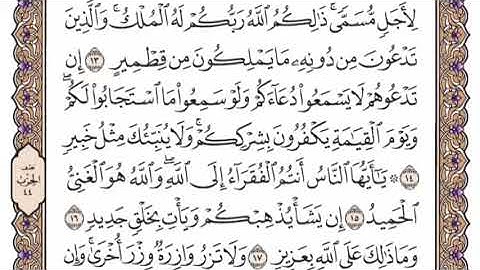 لِأَجَلٍ مُّسَمًّى ۚ ذَٰلِكُمُ ٱللَّهُ رَبُّكُمْ لَهُ ٱلْمُلْكُ ۚ وَٱلَّذِينَ
تَدْعُونَ مِن دُونِهِۦ مَا يَمْلِكُونَ مِن قِطْمِيرٍ ١٣ إِن
تَدْعُوهُمْ لَا يَسْمَعُوا۟ دُعَآءَكُمْ وَلَوْ سَمِعُوا۟ مَا ٱسْتَجَابُوا۟ لَكُمْ ۖ
وَيَوْمَ ٱلْقِيَٰمَةِ يَكْفُرُونَ بِشِرْكِكُمْ ۚ وَلَا يُنَبِّئُكَ مِثْلُ خَبِيرٍ
١٤ ۞ يَٰٓأَيُّهَا ٱلنَّاسُ أَنتُمُ ٱلْفُقَرَآءُ إِلَى ٱللَّهِ ۖ وَٱللَّهُ هُوَ ٱلْغَنِىُّ
ٱلْحَمِيدُ ١٥ إِن يَشَأْ يُذْهِبْكُمْ وَيَأْتِ بِخَلْقٍ جَدِيدٍ ١٦
وَمَا ذَٰلِكَ عَلَى ٱللَّهِ بِعَزِيزٍ ١٧ وَلَا تَزِرُ وَازِرَةٌ وِزْرَ أُخْرَىٰ ۚ وَإِن
الحزب
٤٤